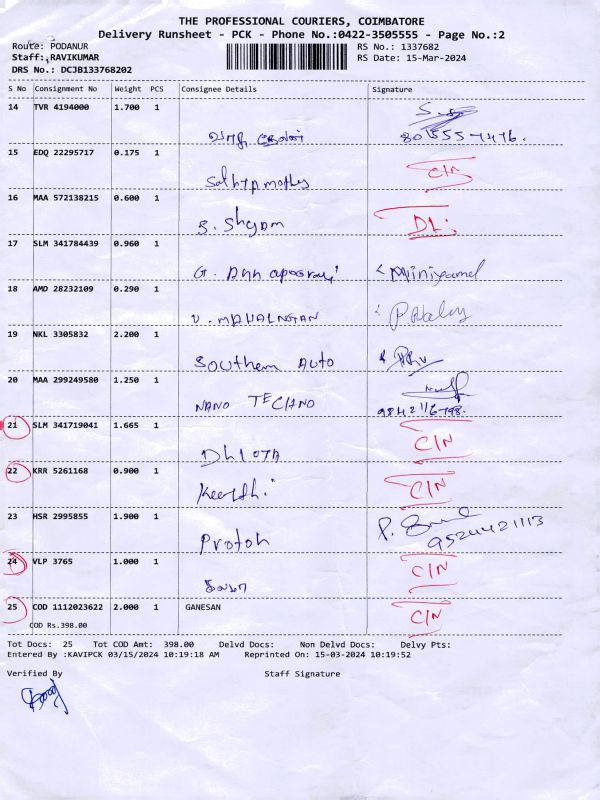 THE PROFESSIONAL COURIERS, COIMBATORE
Delivery Runsheet - PCK - Phone No.:0422-3505555 - Page No.:2
Route: PODANUR RS No.: 1337682
Staff: RAVIKUMAR RS Date: 15-Mar-2024
DRS No.: DCJB133768202
S No Consignment No Weight PCS Consignee Details Signature
14 TVR 4194000 1.700 1
15 EDQ 22295717 0.175 1 C/N
16 MAA 572138215 0.600 1
S. Shyam
17 SLM 341784439 0.960 1
18 AMD 28232109 0.290 1
19 NKL 3305832 2.200 1
Southern Auto
20 MAA 299249580 1.250 1
NANO
21 SLM 341719041 1.665 1 C/N
22 KRR 5261168 0.900 1 C/N
23 HSR 2995855 1.900 1
Protoh 9524421113
24 VLP 3765 1.000 1 C/N
25 COD 1112023622 2.000 1 GANESAN C/N
COD Rs.398.00
Tot Docs: 25 Tot COD Amt: 398.00 Delvd Docs: Non Delvd Docs: Delvy Pts:
Entered By :KAVIPCK 03/15/2024 10:19:18 AM Reprinted On: 15-03-2024 10:19:52
Verified By Staff Signature